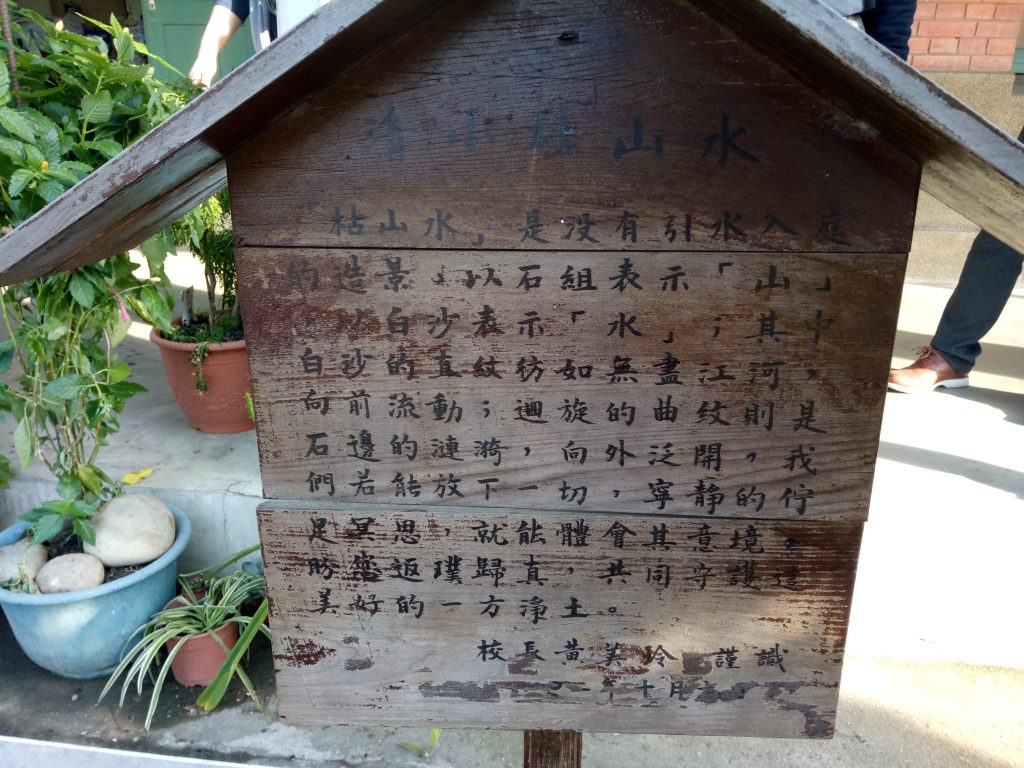 清小枯山水
「枯山水」是没有引水入庭
的造景,以石組表示「山」
,以白沙表示「水」;其中
白沙的直紋彷如無盡江河,
向前流動;迴旋的曲紋則是
石邊的漣漪,向外泛開。我
們若能放下一切,寧靜的佇
足冥思,就能體會其意境。
盼您返璞歸真,共同守護這
美好的一方淨土。
校長黃美玲 謹識
年十月